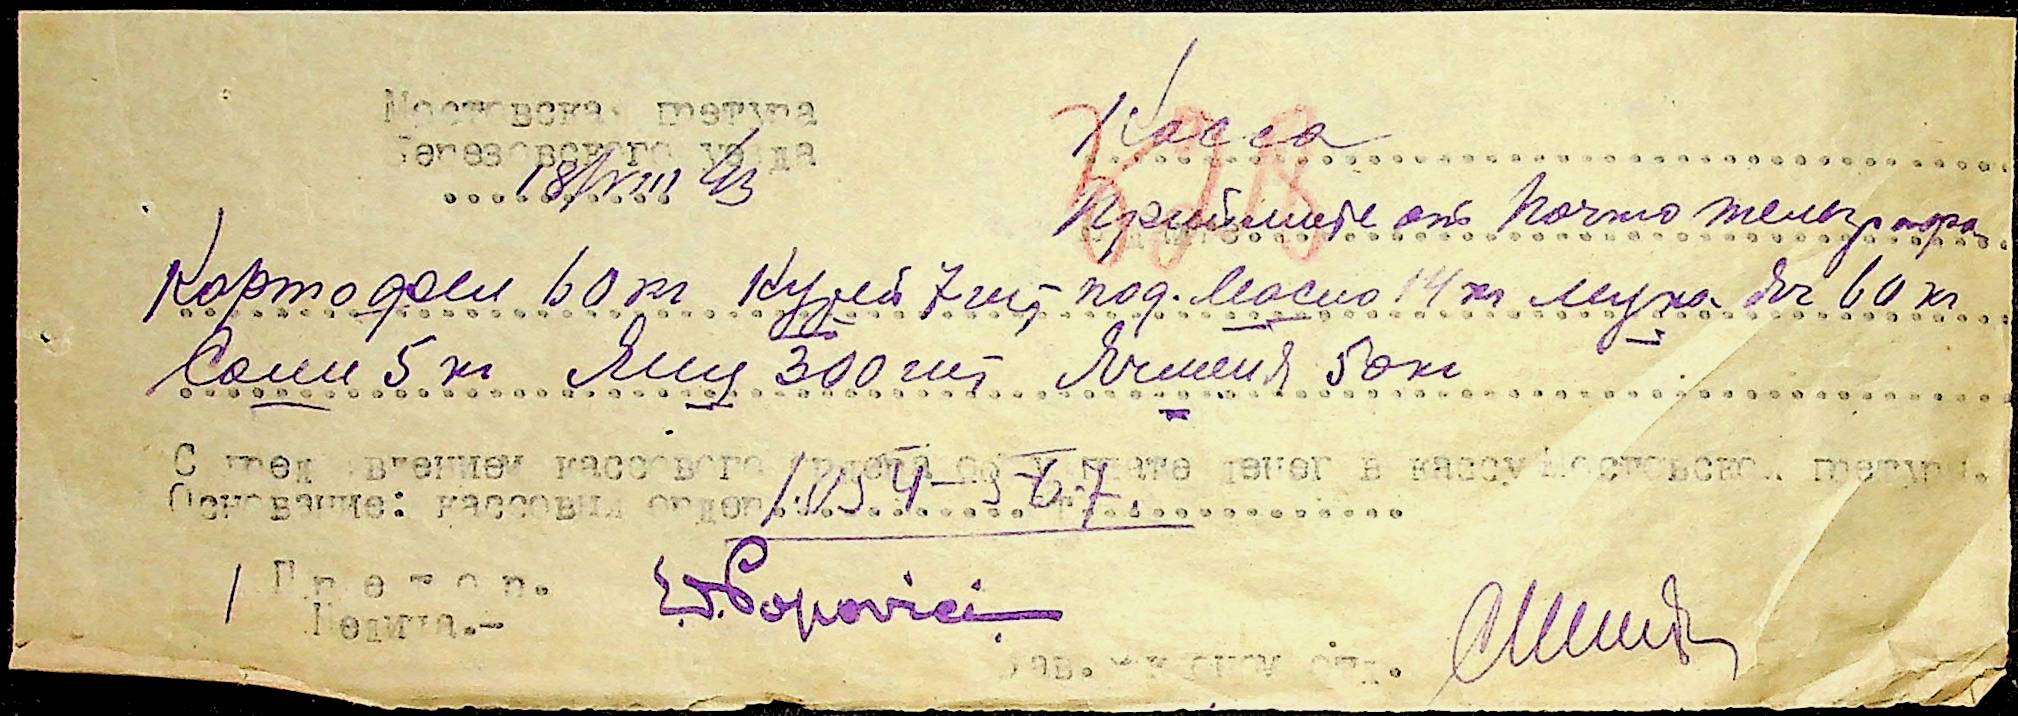 Мостовская претура
Березовского уезда
18/VIII 43
Касса
628
Приймите от Почто телеграфа
Картофеля 60 кг Курей 7 шт под. Масло 14 кг Мука Яч 60 кг
Соли 5 кг Яиц 300 шт Ячменя 50 кг
С пред'явлением кассового ордера об уплате денег в кассу Мостовской претуры.
Основание: кассовый ордер
1054-567.
П р е т о р.
Е. Popovici
Зав. отд.